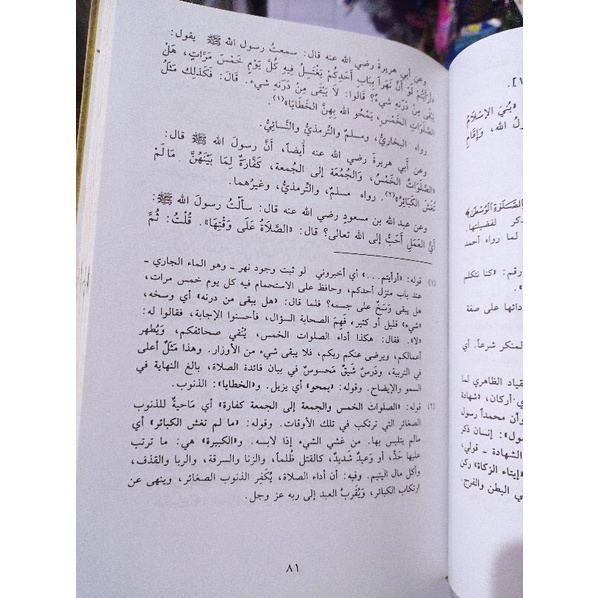 وعن أبي هريرة رضي الله عنه قال: سمعتُ رسول الله ﷺ يقول:
«أرأيتُم لَوْ أَنَّ نَهَراً بِبَابِ أَحَدِكُمْ يَغْتَسِلُ فِيهِ كُلَّ يَوْمٍ خَمْسَ مَرَّاتٍ، هَلْ
يَبْقَى مِنْ دَرَنِهِ شَيءٌ؟ قالوا: لاَ يَبْقَى مِنْ دَرَنِهِ شيءٌ. قَالَ: فَكَذلِك مَثَلُ
الصَّلَوَاتِ الخَمْسِ، يَمْحُو الله بِهِنَّ الخَطَايَا»(١).
رواه البخاريُّ، ومسلمٌ والتِّرمذيُّ والنَّسائيُّ.
وعن أبي هريرة رضي الله عنه أيضاً، أَنَّ رسولَ الله ﷺ قال:
«الصَّلَوَاتُ الخَمْسُ، وَالجُمُعَة إلى الجُمعة، كَفَّارَةٌ لِمَا بَيْنَهُنَّ مَا لَمْ
تُغْشَ الكَبَائِرُ»(٢). رواه مسلمٌ، والتِّرمذيُّ، وغيرُهما.
وعن عبد الله بن مسعودٍ رضي الله عنه قال: سألتُ رسولَ الله ﷺ:
أَيُّ العَمَلِ أَحَبُّ إلى الله تعالى؟ قال: «الصَّلاَةُ عَلَى وَقْتِهَا». قُلْتُ: ثُمَّ
(١) قوله: «أرأيتم...» أي أخبروني لو ثبت وجود نهر ـ وهو الماء الجاري ـ
عند باب منزل أحدكم، وحافظ على الاستحمام فيه كل يوم خمس مرات،
هل يبقى وَسَخٌ على جسمه؟ فلما قال: «هل يبقى من درنه» أي وسخه،
«شيء» قليل أو كثير، فَهِمَ الصحابة السؤال، فأحسنوا الإجابة، فقالوا له:
«لا». فقال: هكذا أداء الصلوات الخمس، يُنَقِّي صحائفكم، ويُطهر
أعمالكم، ويرضى عنكم ربكم، فلا يبقى شيء من الأوزار. وهذا مَثَلٌ أعلى
في التربية، ودَرْسٌ شَيِّقٌ مَحسوسٌ في بيان فائدة الصلاة، بالغ النهاية في
السمو والإيضاح. وقوله: «يمحو» أي يزيل. و«الخطايا»: الذنوب.
(٢) قوله: «الصلوات الخمس والجمعة إلى الجمعة كفارة» أي مَاحيةٌ للذنوب
الصغائر التي ترتكب في تلك الأوقات. وقوله: «ما لم تغش الكبائر» أي
مالم يتلبس بها. من غشي الشيء إذا لابسه. و«الكبيرة» هي: ما ترتب
عليها حَدٌّ، أو وَعِيدٌ شَديدٌ، كالقتل ظُلماً، والزنا والسرقة، والربا والقذف،
وأكل مال اليتيم. وفيه: أن أداء الصلاة، يُكَفِر الذنوب الصغائر، وينهى عن
ارتكاب الكبائر، وَيُقَرِبُ العبد إلى ربه عز وجل.
٨١
«بُنِيَ الإسْلاَمُ
الصَّلَوٰةِ الْوُسْطَىٰ﴾
لما رواه أحمد
رقم: «كنا نتكلم
دائها على صفة
المنكر شرعاً. أي
شهادة
وأن محمداً رسول
إنسان ذكر
الشهادة ـ قولي
«إيتاء الزكاة» ركن
ي البطن والفرج.